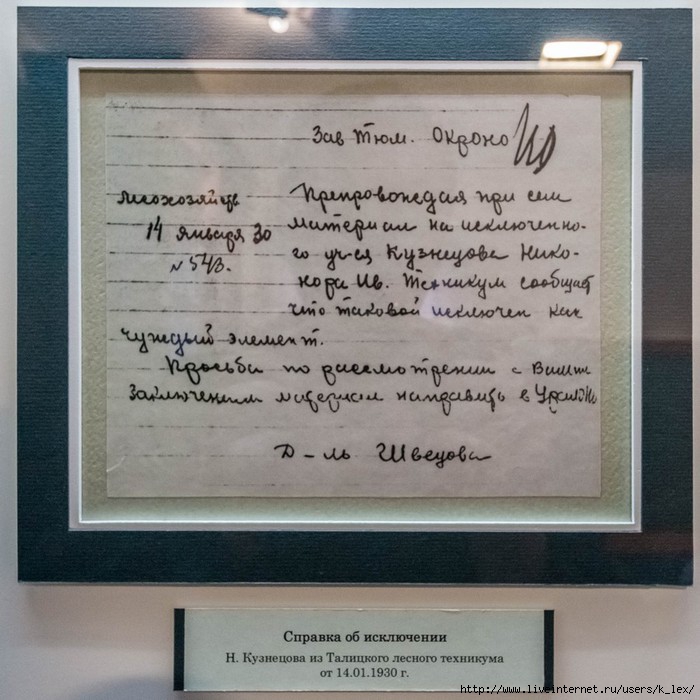 Зав Тюм. Окроно
Лесохозяйств
14 января 30
№ 54/3.
Препровождая при сем
материал на исключенно-
го уч-ся Кузнецова Нико-
нора Ив. Техникум сообщает
что таковой исключен как
чуждый элемент.
Просьба по рассмотрении с Вашим
заключением материал направить в
Д-ль Швецова
Справка об исключении
Н. Кузнецова из Талицкого лесного техникума
от 14.01.1930 г.
http://www.liveinternet.ru/users/k_lex/